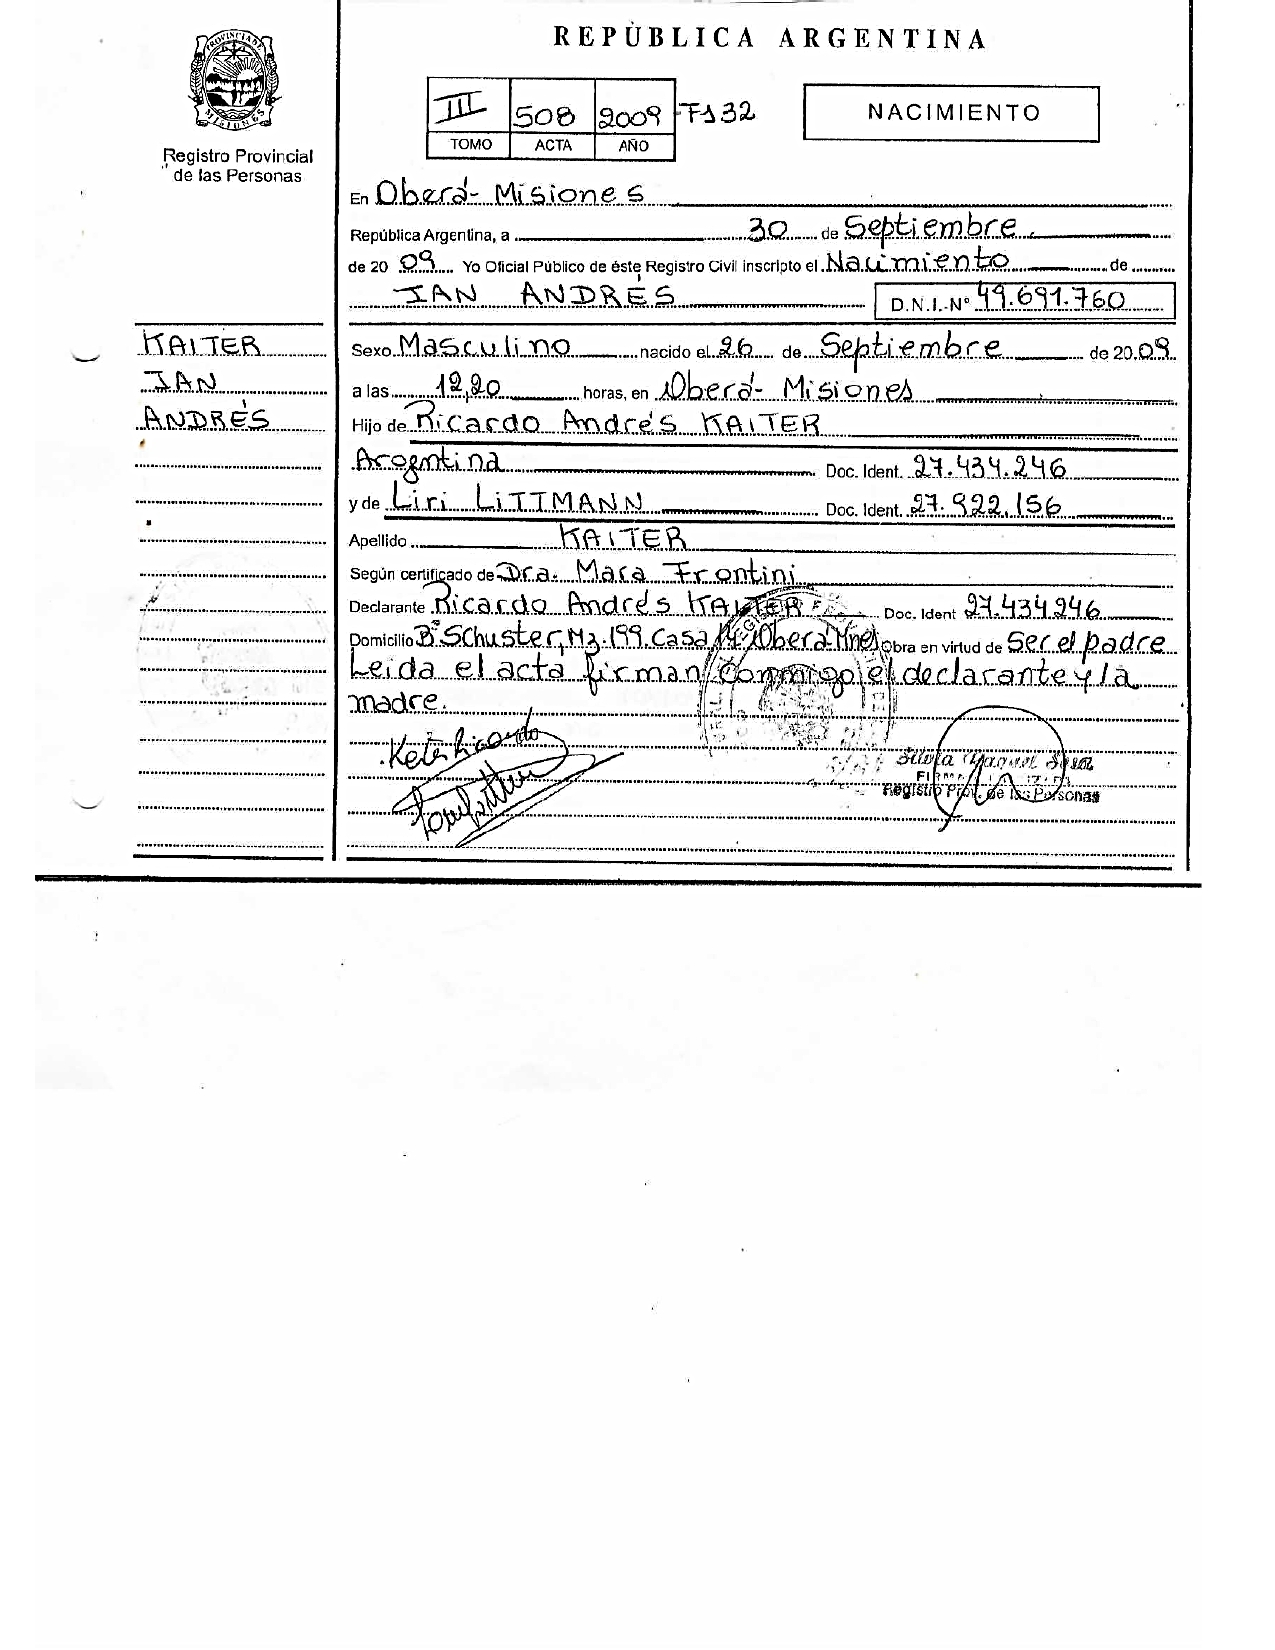 REPÚBLICA ARGENTINA
III 508 2009 Fº 32
TOMO ACTA AÑO
NACIMIENTO
Registro Provincial
de las Personas
En Oberá - Misiones
República Argentina, a 30 de Septiembre
de 20 09 Yo Oficial Público de éste Registro Civil inscripto el Nacimiento de
IAN ANDRÉS D.N.I.-Nº 49.691.760
KAITER
IAN
ANDRÉS
Sexo Masculino nacido el 26 de Septiembre de 20 09
a las 12,20 horas, en Oberá - Misiones
Hijo de Ricardo Andrés KAITER
Argentina Doc. Ident. 27.434.246
y de Liri LITTMANN Doc. Ident. 27.922.156
Apellido KAITER
Según certificado de Dra. Mara Frontini
Declarante Ricardo Andrés KAITER Doc. Ident 27.434.246
Domicilio Bº Schuster, Mz. 199. Casa Oberá Mnes Obra en virtud de Ser el padre
Leída el acta firman conmigo el declarante y la
madre.
Registro Prov. de las Personas